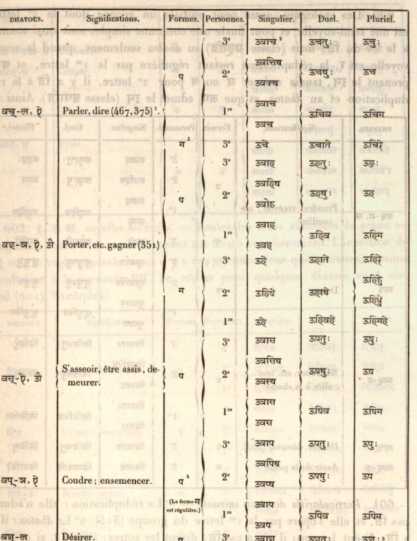 DHATOUS. Significations. Formes. Personnes. Singulier. Duel. Pluriel.
3ᵉ उवाच¹ ऊचतुः ऊचुः
उवचिथ
प 2ᵉ ऊचथुः ऊच
उवक्थ
वच्-ल, ऐ Parler, dire (467, 375)¹. उवाच
1ʳᵉ ऊचिव ऊचिम
उवच
म¹ 3ᵉ ऊचे ऊचाते ऊचिरे
3ᵉ उवाह ऊहतुः ऊहुः
उवहिथ
प 2ᵉ ऊहथुः ऊह
उवोढ
उवाह
1ʳᵉ ऊहिव ऊहिम
वह्-ञ, ऐ, औ Porter, etc. gagner (351) उवह
3ᵉ ऊहे ऊहाते ऊहिरे
ऊहिढ्वे
म 2ᵉ ऊहिषे ऊहाथे
ऊहिध्वे
1ʳᵉ ऊहे ऊहिवहे ऊहिमहे
3ᵉ उवास ऊषतुः ऊषुः
उवसिथ
वस्-ऐ, औ S'asseoir, être assis, de- प 2ᵉ ऊषथुः ऊष
meurer. उवस्थ
उवास
1ʳᵉ ऊषिव ऊषिम
उवस
3ᵉ उवाप ऊपतुः ऊपुः
उवपिथ
2ᵉ ऊपथुः ऊप
वप्-ञ, ऐ Coudre; ensemencer. प¹ उवप्थ
(La forme म
est régulière.) उवाप
1ʳᵉ ऊपिव ऊपिम
उवप
Désirer. प 3ᵉ